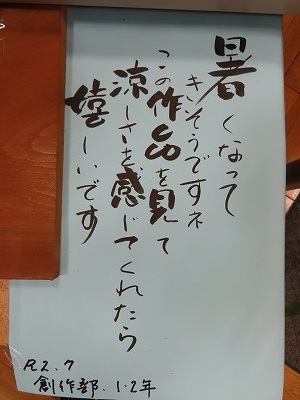 暑くなって
きそうですネ
この作品を見て
涼しさを感じてくれたら
嬉しいです
R2.7
創作部.1.2年